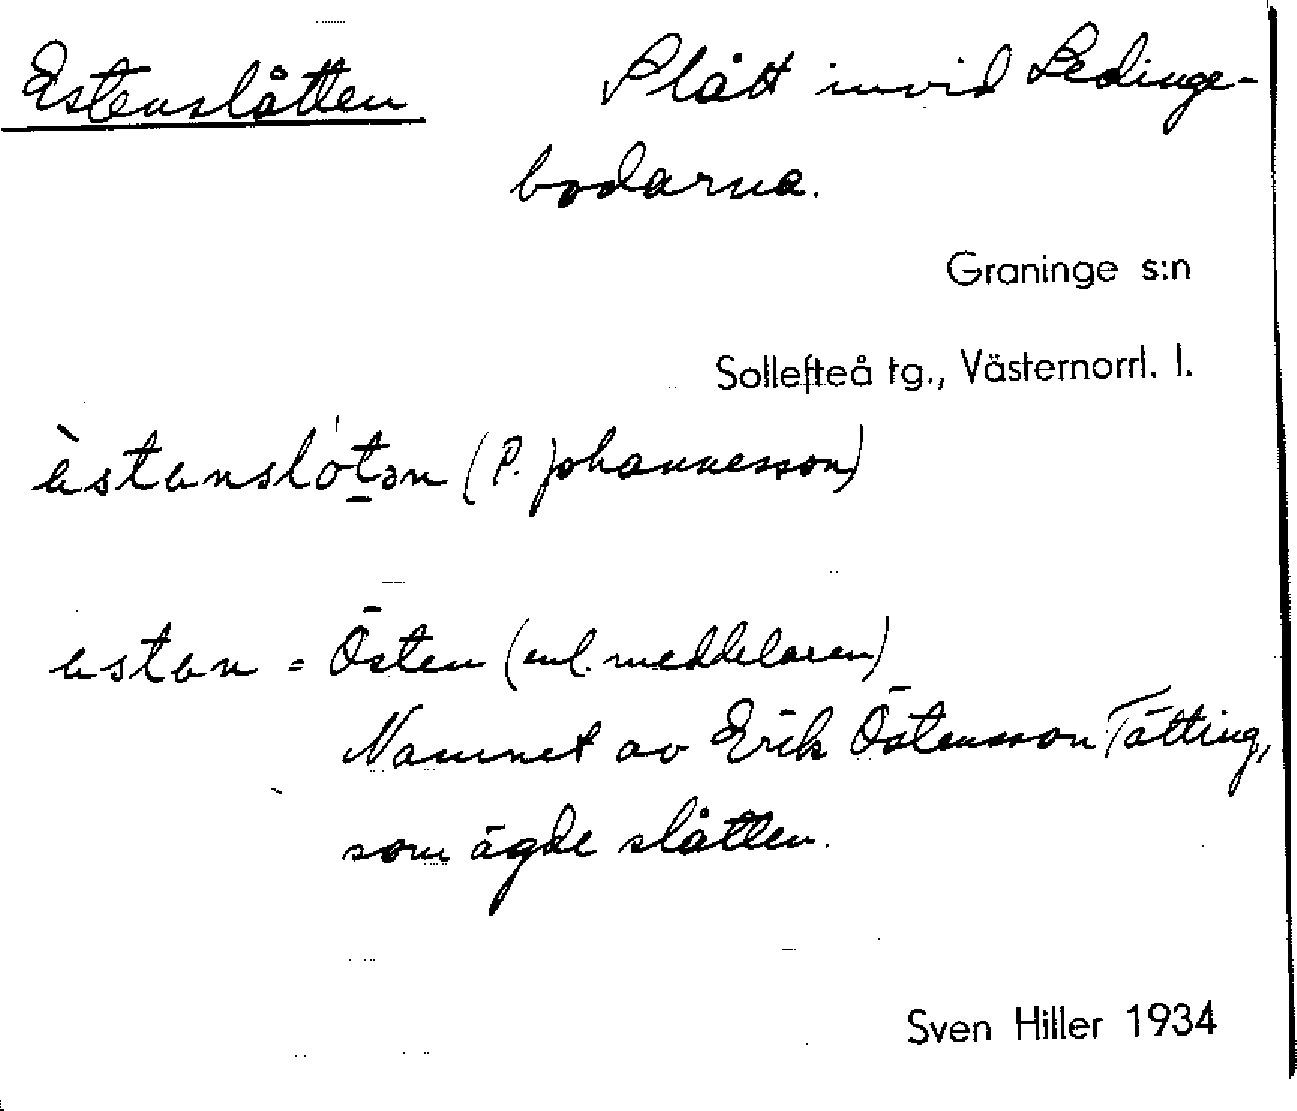 Estenslåtten Slått invid Ledinge-
bodarna.
Graninge s:n
Sollefteå tg., Västernorrl. l.
àstanslótən (P. Johannesson)
astan = Östen (enl. meddelaren)
Namnet av Erik Östensson Tåtting,
som ägde slåtten.
Sven Hiller 1934